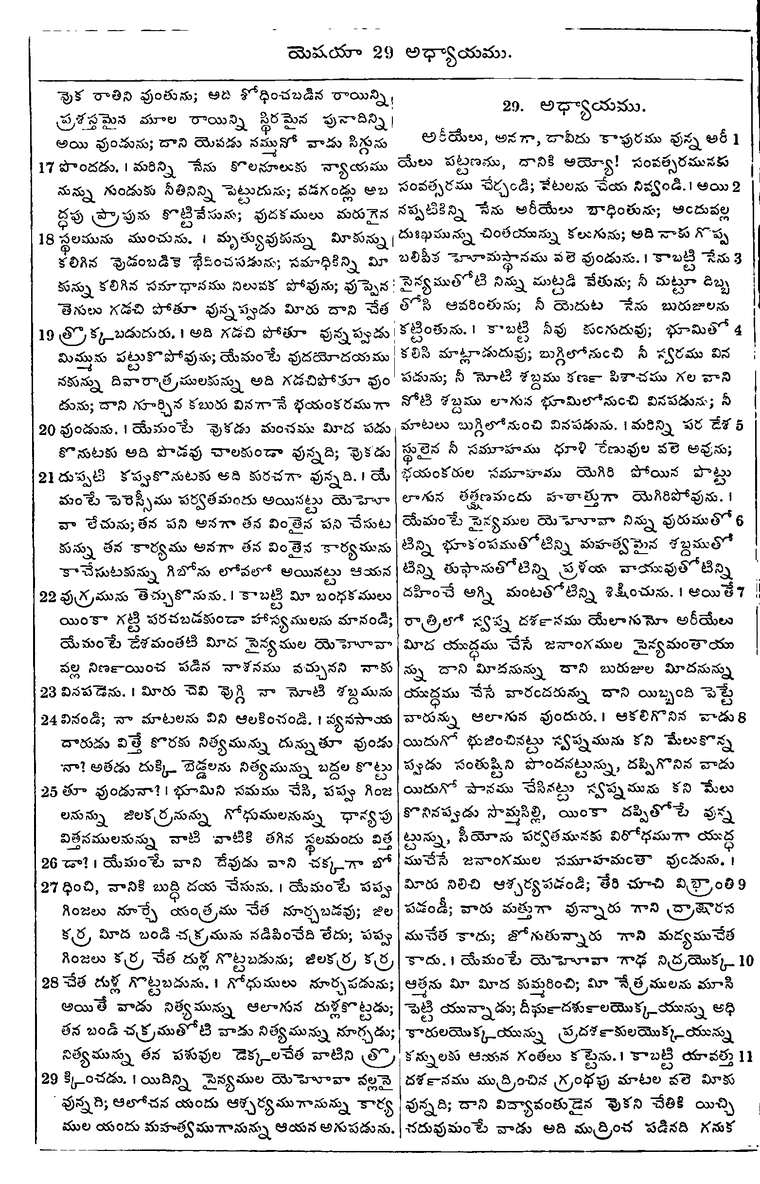 యెషయా 29 అధ్యాయము.
వుక రాతిని వుంతును; అది శోధించబడిన రాయిన్ని
ప్రశస్తమైన మూల రాయిన్ని స్థిరమైన పునాదిన్ని
అయి వుండును; దాని యెపడు నమ్మునో వాడు సిగ్గును
17 పొందడు. । మరిన్ని నేను కొలనూలుకు న్యాయము
నున్ను గుండుకు నీతినిన్ని పెట్టుదును; వడగండ్లు అబ
ద్ధపు ప్రాపును కొట్టివేసును; వుదకములు మరుగైన
18 స్థలమును ముంచును. । మృత్యువుకున్ను మీకున్ను
కలిగిన వుడంబడికె భేదించపడును; సమాధికిన్ని మీ
కున్ను కలిగిన సమాధానము నిలువక పోవును; వుప్పెన
తెగులు గడచి పోతూ వున్నప్పుడు మీరు దాని చేత
19 త్రొక్కబడుదురు. । అది గడచి పోతూ వున్నప్పుడు
మిమ్మును పట్టుకొపోవును; యేమంటే వుదయోదయము
నకున్ను దివారాత్రములకున్ను అది గడచిపోతూ వుం
డును; దాని గూర్చిన కబురు వినగానే భయంకరముగా
20 వుండును. । యేమంటే వుకడు మంచము మీద పడు
కొనుటకు అది పొడవు చాలకుండా వున్నది; వుకడు
21 దుప్పటి కప్పుకొనుటకు అది కురచగా వున్నది. । యే
మంటే పెరెస్సీము పర్వతమందు అయినట్టు యెహో
వా లేచును; తన పని అనగా తన వింతైన పని చేసుట
కున్ను తన కార్యము అనగా తన వింతైన కార్యమును
కాచేసుటకున్ను గిబోను లోవలో అయినట్టు ఆయన
22 వుగ్రమును తెచ్చుకొనును. । కాబట్టి మీ బంధకములు
యింకా గట్టి పరచబడకుండా హాస్యములను మానండి;
యేమంటే దేశమంతటి మీద సైన్యముల యెహోవా
వల్ల నిణ౯యించ పడిన నాశనము వచ్చునని నాకు
23 వినపడెను. । మీరు చెవి వుగ్గి నా నోటి శబ్దమును
24 వినండి; నా మాటలను విని ఆలకించండి. । వ్యవసాయ
దారుడు విత్తే కొరకు నిత్యమున్ను దున్నుతూ వుండు
నా? అతడు దుక్కి బెడ్డలను నిత్యమున్ను బద్దల కొట్టు
25 తూ వుండునా? । భూమిని సమము చేసి, పప్పు గింజ
లనున్ను జిలకర్రనున్ను గోధుములనున్ను ధాన్యపు
విత్తనములనున్ను వాటి వాటికి తగిన స్థలమందు విత్త
26 డా? । యేమంటే వాని దేవుడు వాని చక్కగా బో
27 ధించి, వానికి బుద్ధి దయ చేసును. । యేమంటే పప్పు
గింజలు నూర్చే యంత్రము చేత నూర్చబడవు; జిల
కర్ర మీద బండి చక్రమును నడిపించేది లేదు; పప్పు
గింజలు కర్ర చేత దుళ్ల గొట్టబడును; జిలకర్ర కర్ర
28 చేత దుళ్ల గొట్టబడును. । గోధుములు నూర్చపడును;
అయితే వాడు నిత్యమున్ను ఆలాగున దుళ్లకొట్టడు;
తన బండి చక్రముతోటి వాడు నిత్యమున్ను నూర్చడు;
నిత్యమున్ను తన పశువుల డెక్కలచేత వాటిని త్రొ
29 క్కించడు. । యిదిన్ని సైన్యముల యెహోవా వల్లనై
వున్నది; ఆలోచన యందు ఆశ్చర్యముగానున్ను కార్య
ముల యందు మహత్వముగానున్ను ఆయన అగుపడును.
29. అధ్యాయము.
అరీయేలు, అనగా, దావీదు కాపురము వున్న అరీ 1
యేలు పట్టణము, దానికి అయ్యో! సంవత్సరమునకు
సంవత్సరము చేర్చండి; వేటలను చేయ నివ్వండి. । అయి 2
నప్పటికిన్ని నేను అరీయేలు బాధింతును; అందువల్ల
దుఃఖమున్ను చింతయున్ను కలుగును; అది నాకు గొప్ప
బలిపీఠ హోమస్థానము వలె వుండును. । కాబట్టి నేను 3
సైన్యముతోటి నిన్ను ముట్టడి వేతును; నీ మట్టూ దిబ్బ
తోసి ఆవరింతును; నీ యెదుట నేను బురుజులను
కట్టింతును. । కాబట్టి నీవు కుంగుదువు; భూమితో 4
కలిసి మాట్లాడుదువు; బుగ్గిలోనుంచి నీ స్వరము విన
పడును; నీ నోటి శబ్దము కణ౯ పిశాచము గల వాని
నోటి శబ్దము లాగున భూమిలోనుంచి వినపడును; నీ
మాటలు బుగ్గిలోనుంచి వినపడును. । మరిన్ని పర దేశ 5
స్థులైన నీ సమూహము ధూళి రేణువుల వలె అవును;
భయంకరుల సమూహము యెగిరి పోయిన పొట్టు
లాగున తత్క్షణమందు హఠాత్తుగా యెగిరిపోవును. ।
యేమంటే సైన్యముల యెహోవా నిన్ను వురుముతో 6
టిన్ని భూకంపముతోటిన్ని మహత్వమైన శబ్దముతో
టిన్ని తుఫానుతోటిన్ని ప్రళయ వాయువుతోటిన్ని
దహించే అగ్ని మంటతోటిన్ని శిక్షించును. । అయితే 7
రాత్రిలో స్వప్న దశ౯నము యేలాగునో అరీయేలు
మీద యుద్ధము చేసే జనాంగముల సైన్యమంతాయు
న్ను దాని మీదనున్ను దాని బురుజుల మీదనున్ను
యుద్ధము చేసే వారందరున్ను దాని యిబ్బంది పెట్టే
వారున్ను ఆలాగున వుందురు. । ఆకలిగొనిన వాడు 8
యిదుగో భుజించినట్టు స్వప్నమును కని మేలుకొన్న
ప్పుడు సంతుష్టిని పొందనట్టున్ను, దప్పిగొనిన వాడు
యిదుగో పానము చేసినట్టు స్వప్నమును కని మేలు
కొనినప్పుడు సొమ్మసిల్లి, యింకా దప్పితోటే వున్న
ట్టున్ను, సీయోను పర్వతమునకు విరోధముగా యుద్ధ
ముచేసే జనాంగముల సమూహమంతా వుండును. ।
మీరు నిలిచి ఆశ్చర్యపడండి; తేరి చూచి విభ్రాంతి 9
పడండీ; వారు మత్తుగా వున్నారు గాని ద్రాక్షారస
ముచేత కాదు; జోగుతున్నారు గాని మద్యముచేత
కాదు. । యేమంటే యెహోవా గాఢ నిద్రయొక్క 10
ఆత్మను మీ మీద కుమ్మరించి; మీ నేత్రములను మూసి
పెట్టి యున్నాడు; దీఘ౯దశు౯లయొక్కయున్ను అధి
కారులయొక్కయున్ను ప్రదశ౯కులయొక్కయున్ను
కన్నులకు ఆయన గంతలు కట్టెను. । కాబట్టి యావత్తు 11
దశ౯నము ముద్రించిన గ్రంథపు మాటల వలె మీకు
వున్నది; దాని విద్యావంతుడైన వుకని చేతికి యిచ్చి
చదువుమంటే వాడు అది ముద్రించ పడినది గనుక